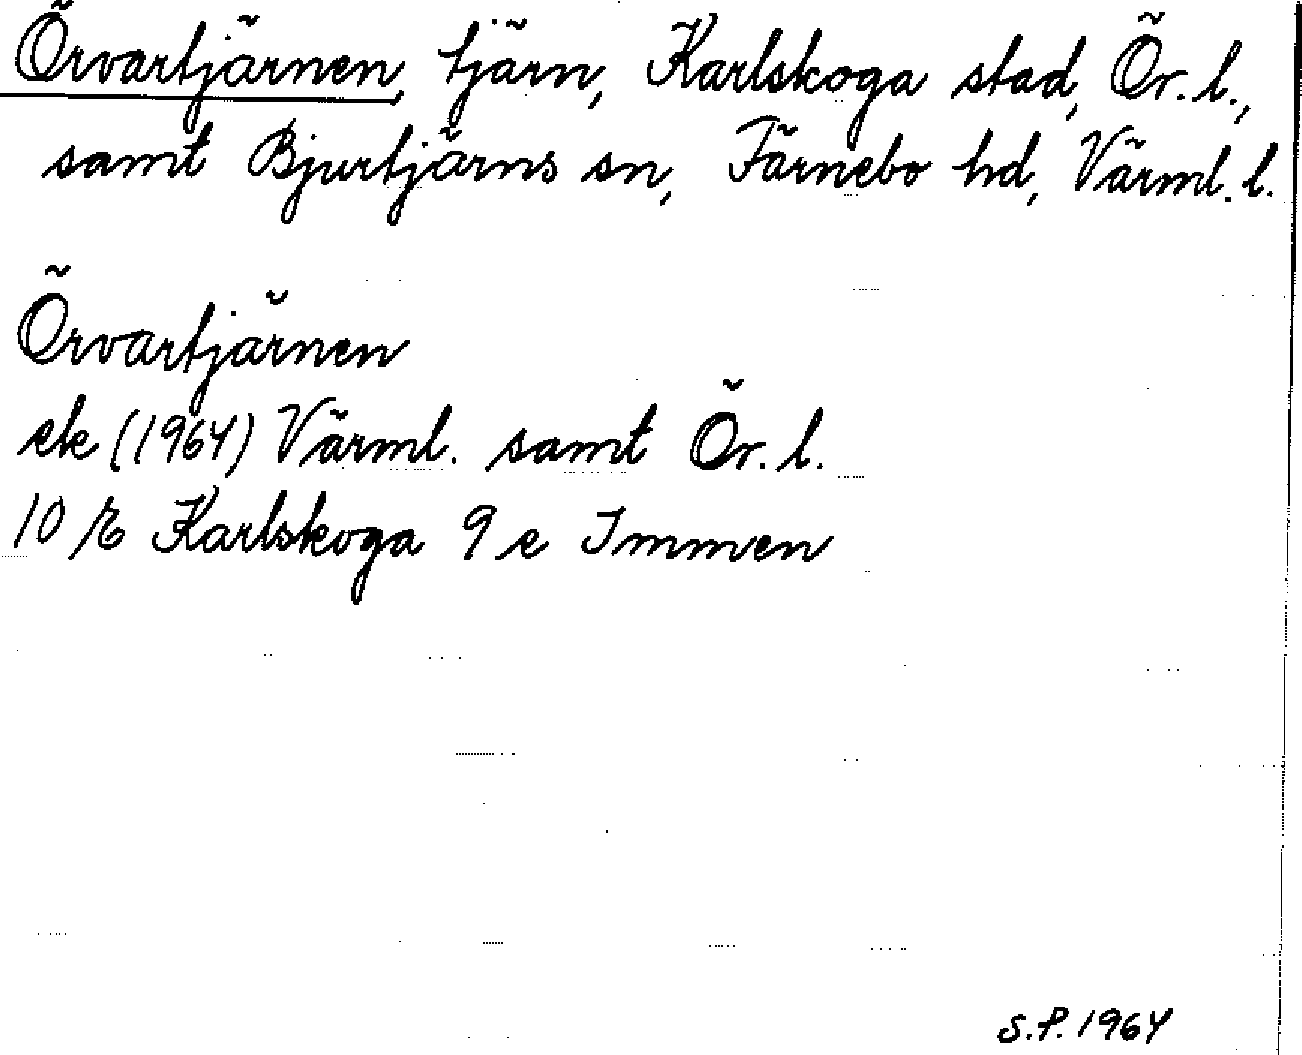 Örvartjärnen, tjärn, Karlskoga stad, Ör. l.,
samt Bjurtjärns sn, Färnebo hd, Värml. l.
Örvartjärnen
ek (1964) Värml. samt Ör. l.
10 E Karlskoga 9 e Immen
S.P. 1964